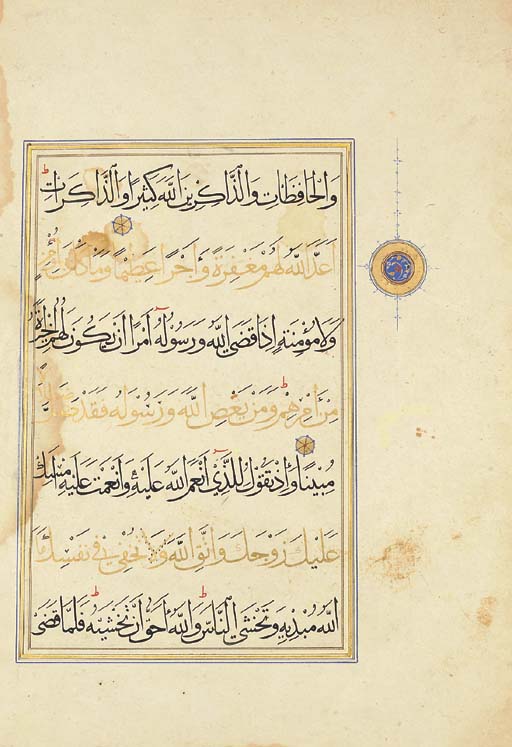 وَالْحَافِظَاتِ وَالذَّاكِرِينَ اللَّهَ كَثِيرًا وَالذَّاكِرَاتِ
أَعَدَّ اللَّهُ لَهُم مَّغْفِرَةً وَأَجْرًا عَظِيمًا وَمَا كَانَ لِمُؤْمِنٍ
وَلَا مُؤْمِنَةٍ إِذَا قَضَى اللَّهُ وَرَسُولُهُ أَمْرًا أَن يَكُونَ لَهُمُ الْخِيَرَةُ
مِنْ أَمْرِهِمْ وَمَن يَعْصِ اللَّهَ وَرَسُولَهُ فَقَدْ ضَلَّ
مُّبِينًا وَإِذْ تَقُولُ لِلَّذِي أَنْعَمَ اللَّهُ عَلَيْهِ وَأَنْعَمْتَ عَلَيْهِ أَمْسِكْ
عَلَيْكَ زَوْجَكَ وَاتَّقِ اللَّهَ وَتُخْفِي فِي نَفْسِكَ مَا
اللَّهُ مُبْدِيهِ وَتَخْشَى النَّاسَ وَاللَّهُ أَحَقُّ أَن تَخْشَىهُ فَلَمَّا قَضَىٰ